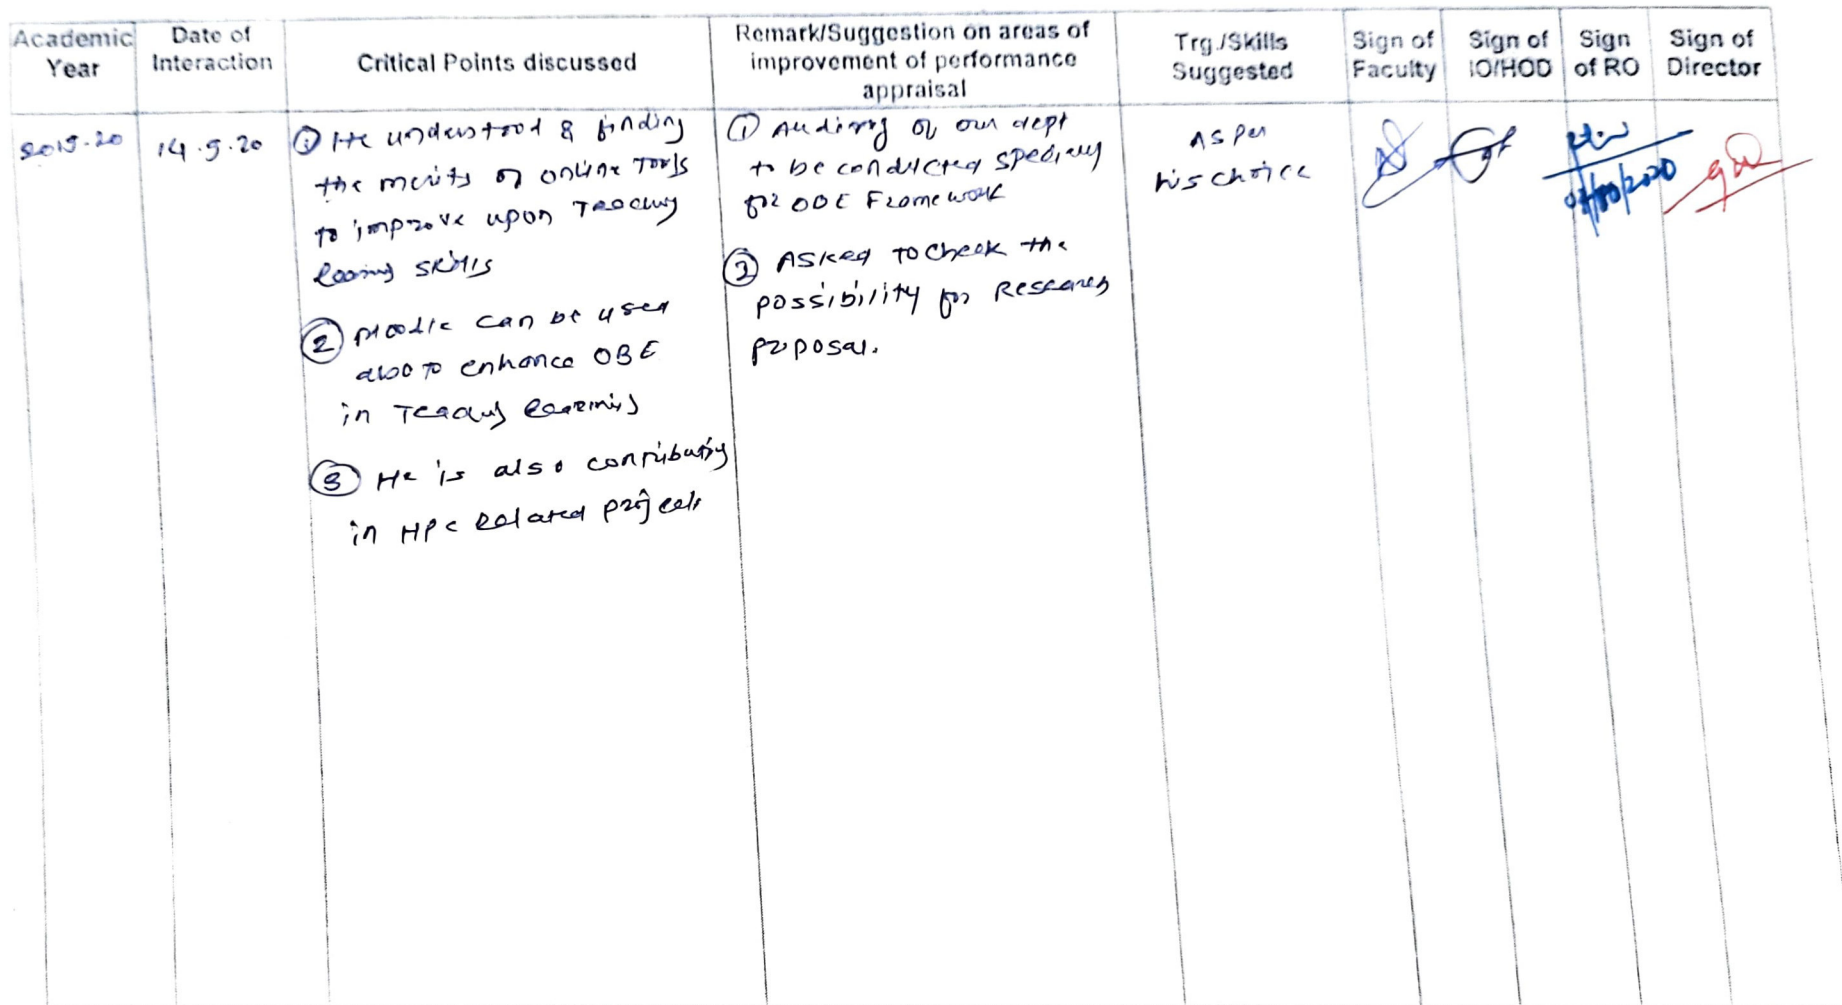 Academic Year
Date of Interaction
Critical Points discussed
Remark/Suggestion on areas of
improvement of performance
appraisal
Trg./Skills
Suggested
Sign of
Faculty
Sign of
IO/HOD
Sign
of RO
Sign of
Director
2019-20
14.9.20
① He understood & finding
the merits of online Tools
to improve upon Teaching
learning skills
② Moodle can be used
also to enhance OBE
in Teaching learning
③ He is also contributing
in HPC Related projects
① Auditing of our dept
to be conducted specially
for OBE Framework
② Asked to check the
possibility for Research
proposal.
As per
his choice
/10/2020